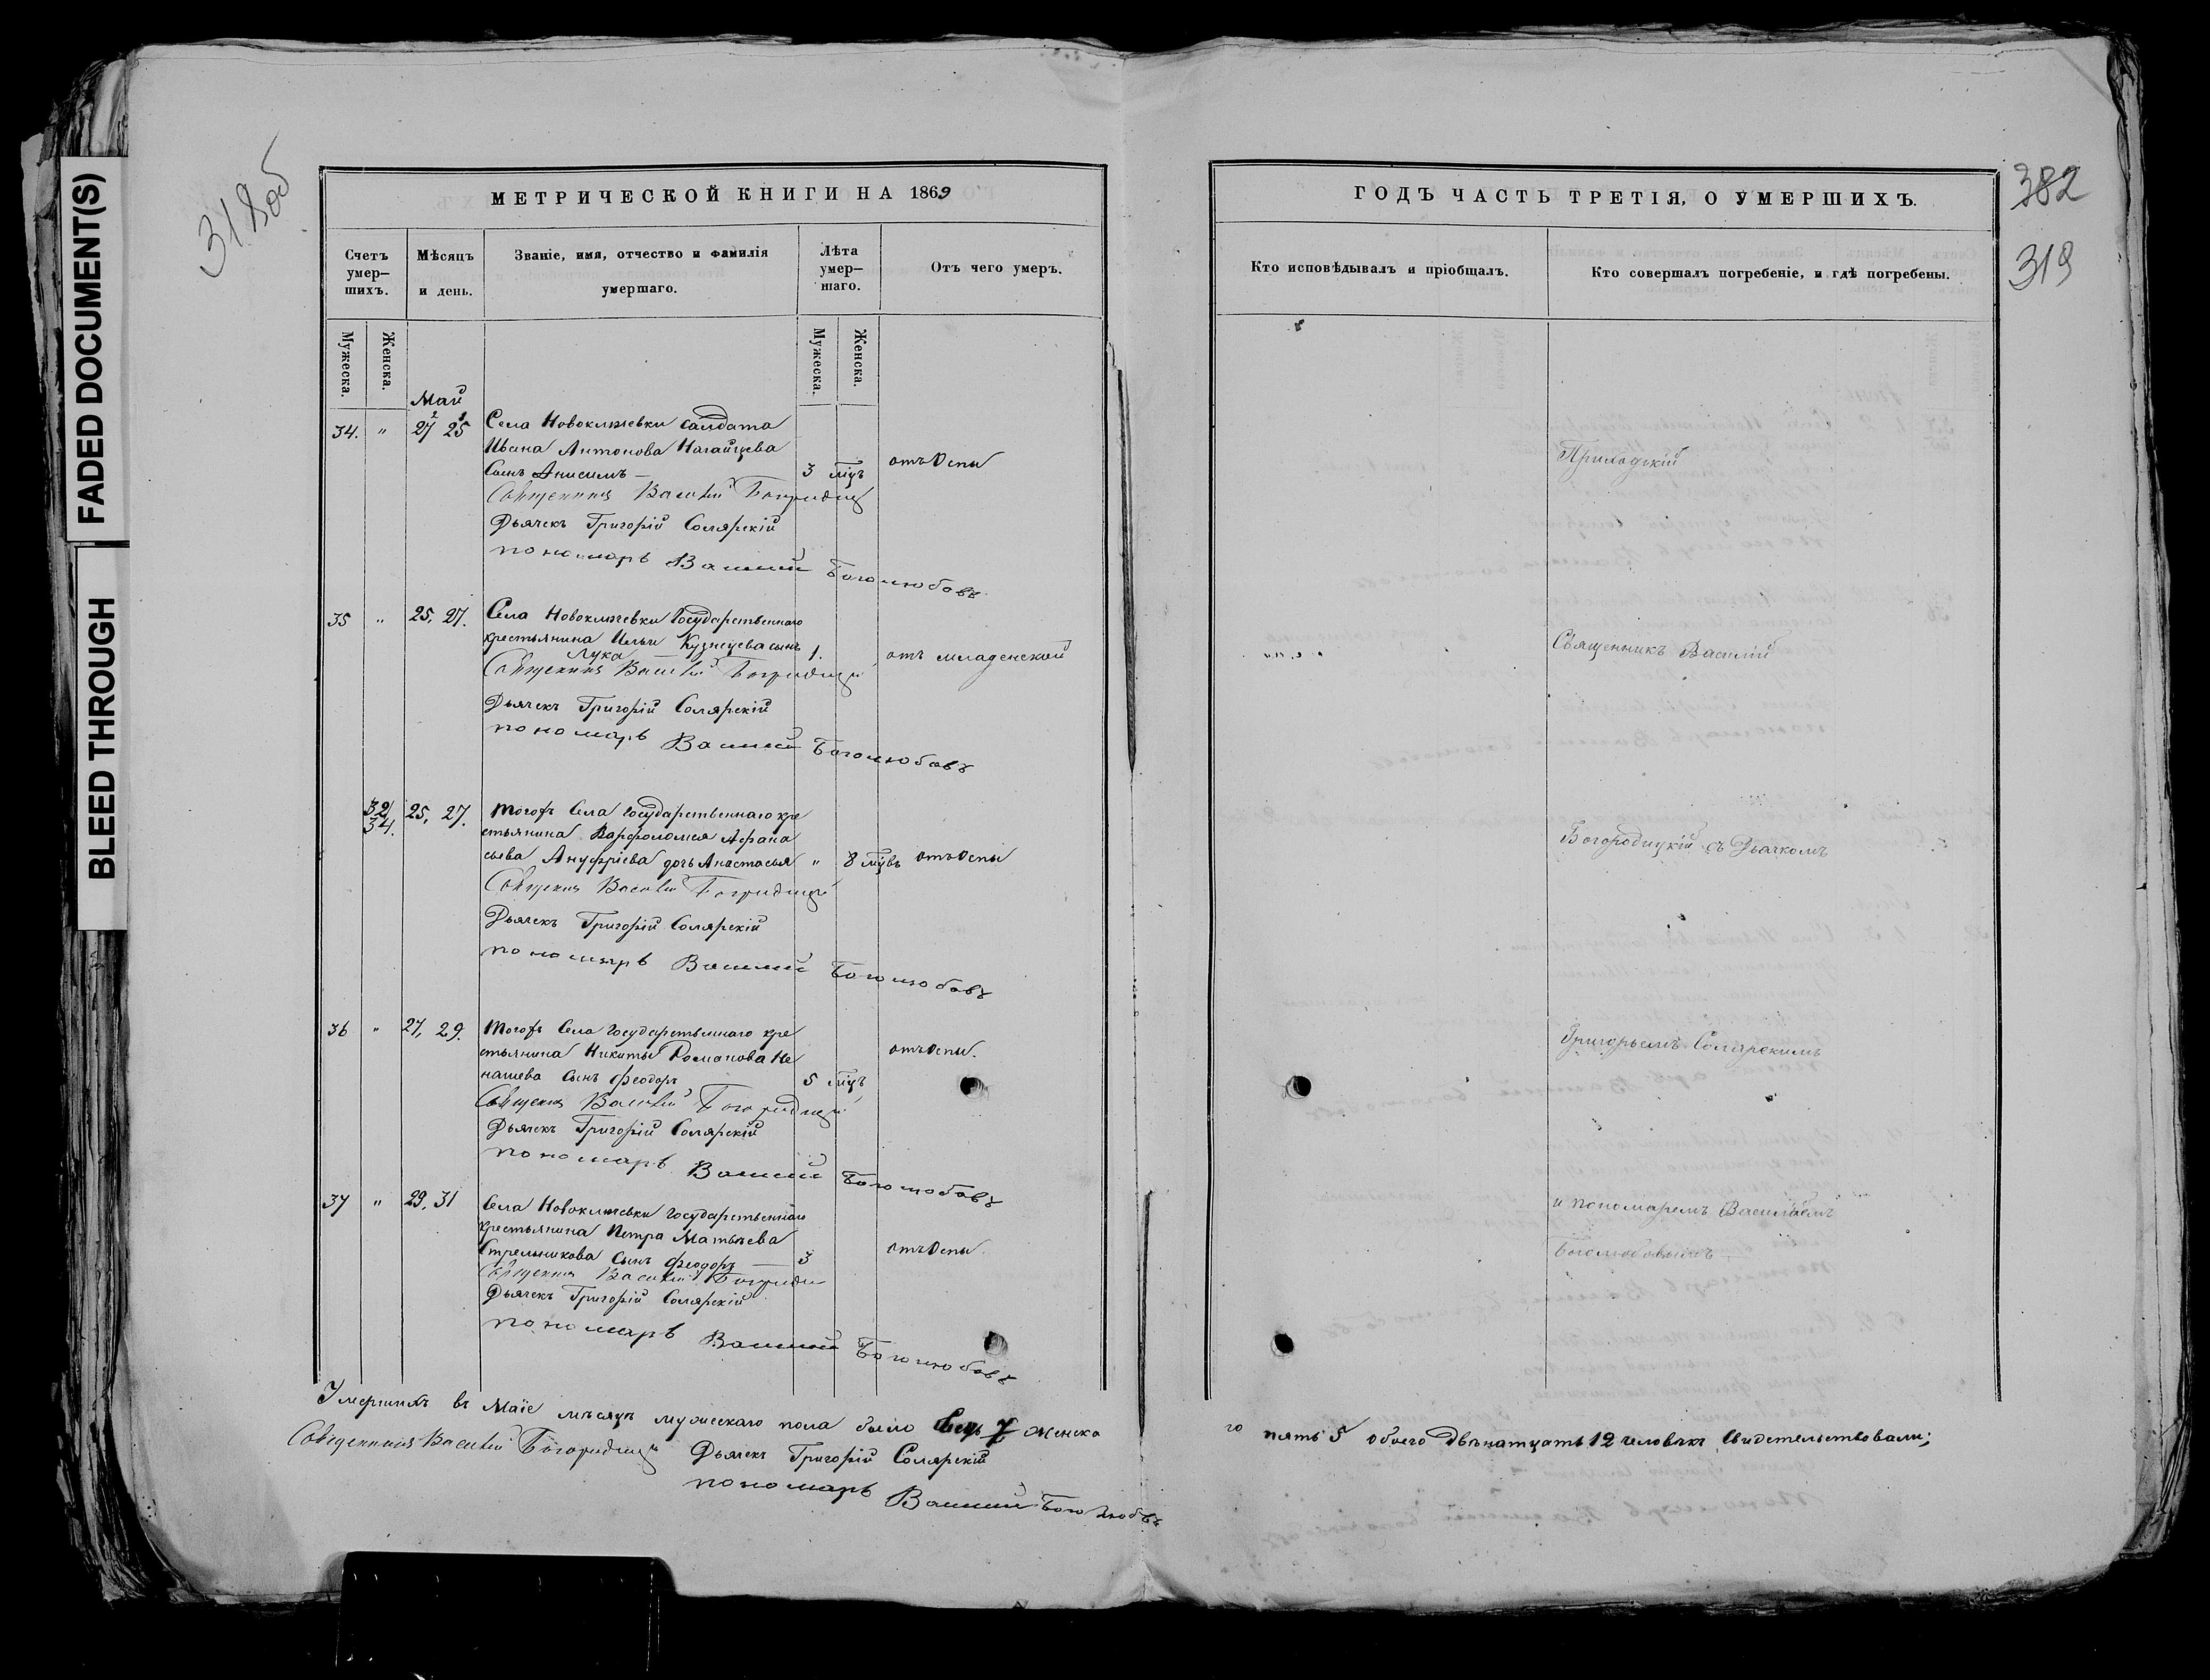 FADED DOCUMENT(S)
BLEED THROUGH
318 об
МЕТРИЧЕСКОЙ КНИГИ НА 1869
Счетъ умер-шихъ.
Мѣсяцъ и день.
Званіе, имя, отчество и фамилія умершаго.
Лѣта умер-шаго.
Отъ чего умеръ.
Мужеска.
Женска.
Мужеска.
Женска.
Май
34. " 27 25 Села Новоключевки солдата
Ивана Антонова Нагайцева
сынъ Анисимъ — 3 мѣц отъ оспы
Священникъ Василій Богородицкій
Дьячекъ Григорій Солярскій
пономарь Василий Боголюбовъ
35 " 25, 27. Села Новоключевки Государственнаго
крестьянина Ильи Кузнецова сынъ
Лука — 1. отъ младенской
Священникъ Василій Богородицкій
Дьячекъ Григорій Солярскій
пономарь Василий Боголюбовъ
32
34. 25, 27. Тогожъ Села Государственнаго кре
стьянина Варфоломея Афана
сьева Ануфріева дочь Анастасья " 8 мѣц отъ оспы
Священникъ Василій Богородицкій
Дьячекъ Григорій Солярскій
пономарь Василий Боголюбовъ
36 " 27, 29. Тогожъ Села Государственнаго кре
стьянина Никиты Романова Не
нашева сынъ Феодоръ 5 мѣц отъ оспы.
Священникъ Василій Богородицкій
Дьячекъ Григорій Солярскій
пономарь Василий Боголюбовъ
37 " 29, 31 Села Новоключевки Государственнаго
крестьянина Петра Матвѣева
Стрельникова сынъ Феодоръ — 3 отъ оспы
Священникъ Василій Богородицкій
Дьячекъ Григорій Солярскій
пономарь Василий Боголюбовъ
Умершихъ въ Маіе мѣсяцѣ мужескаго пола было семь 7 женска
Священникъ Василій Богородицкій Дьячекъ Григорій Солярскій
пономарь Василий Боголюбовъ
ГОДЪ ЧАСТЬ ТРЕТІЯ, О УМЕРШИХЪ.
382
319
Кто исповѣдывалъ и пріобщалъ.
Кто совершалъ погребеніе, и гдѣ погребены.
Приходскій
Священникъ Василій
Богородицкій съ Дьячкомъ
Григорьемъ Солярскимъ
и пономаремъ Васильемъ
Боголюбовымъ
го пять 5 обоего двѣнатцать 12 человѣкъ Свидетельствовали;